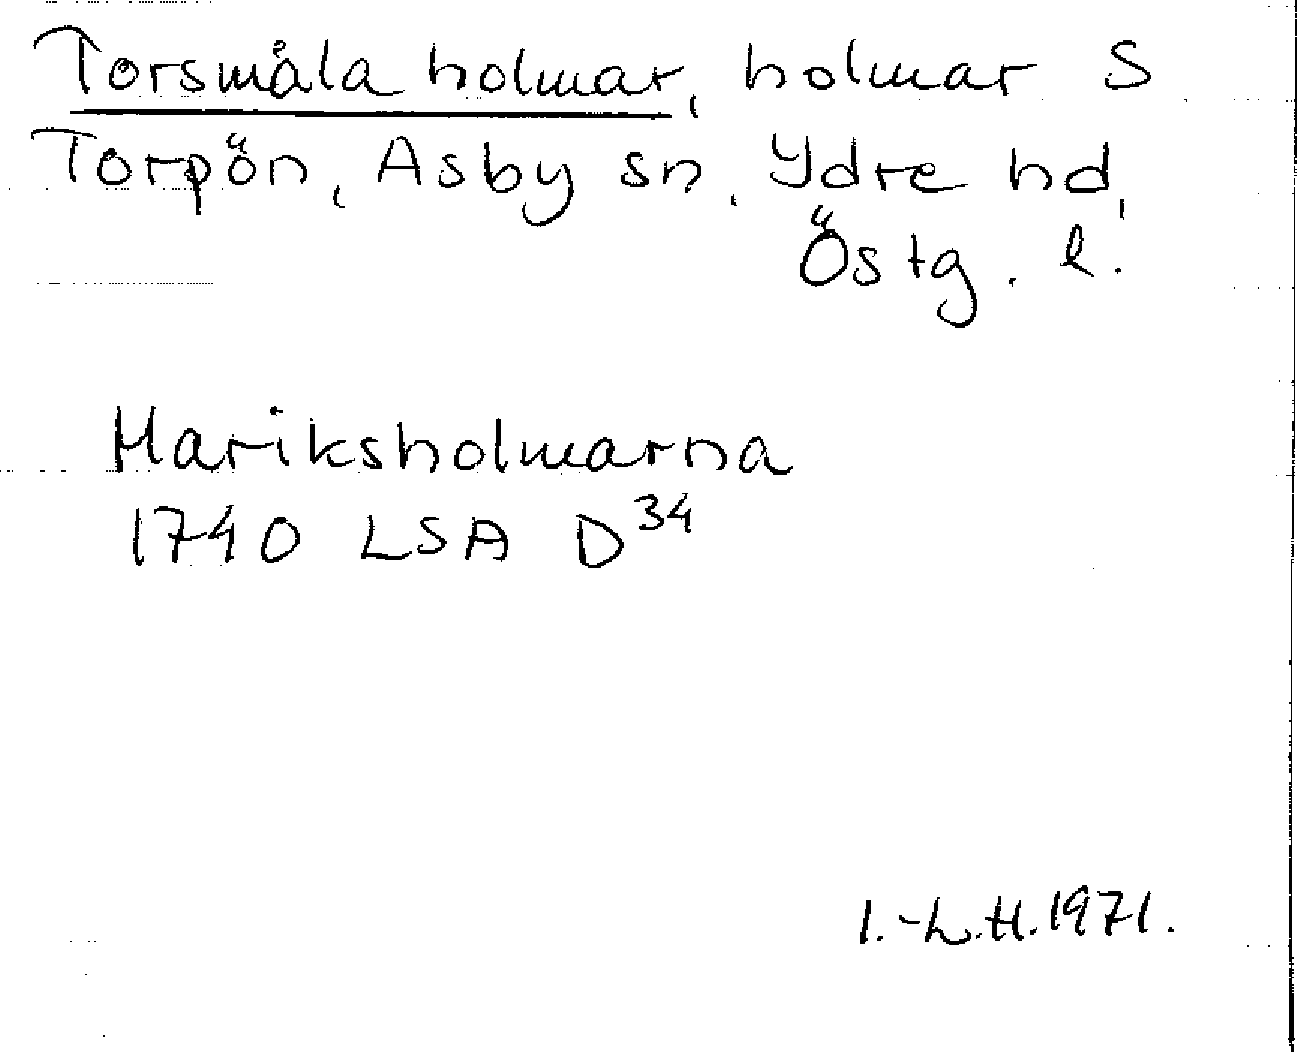 Torsmåla holmar, holmar S
Torpön, Asby sn, Ydre hd,
Östg. l.
Hariksholmarna
1740 LSA D³⁴
I.-L.H.1971.